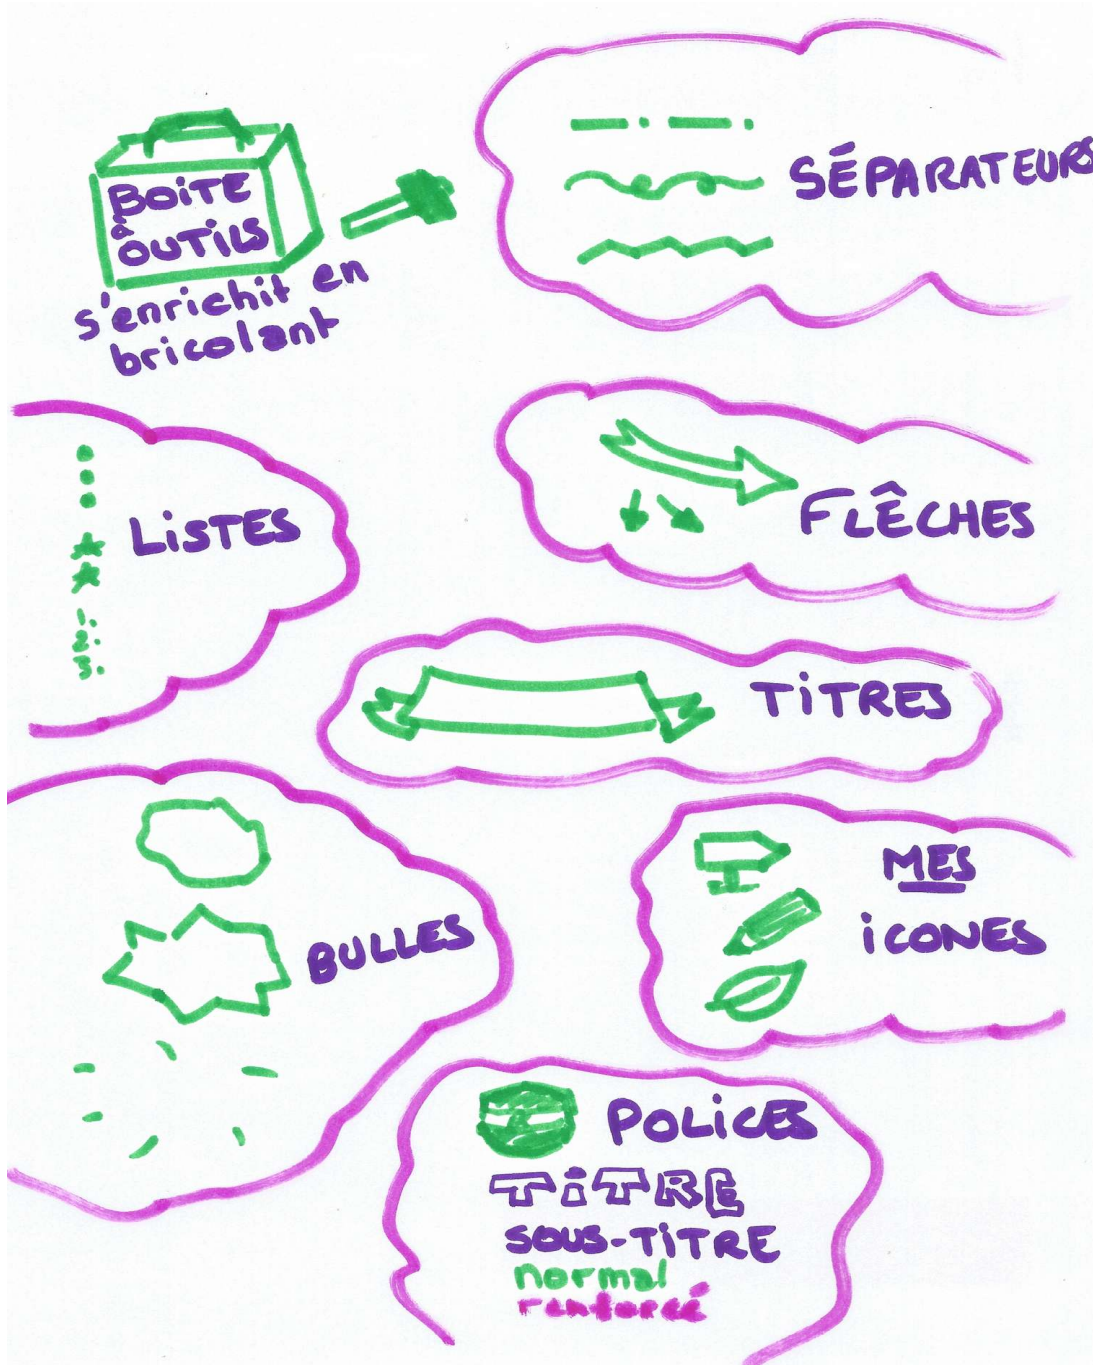 BOiTE
à
OUTiLS
s'enrichit en
bricolant
SÉPARATEURS
LiSTES
1.
2.
3.
FLÊCHES
TiTRES
BULLES
MES
iCONES
POLiCES
TiTRE
SOUS-TiTRE
normal
renforcé